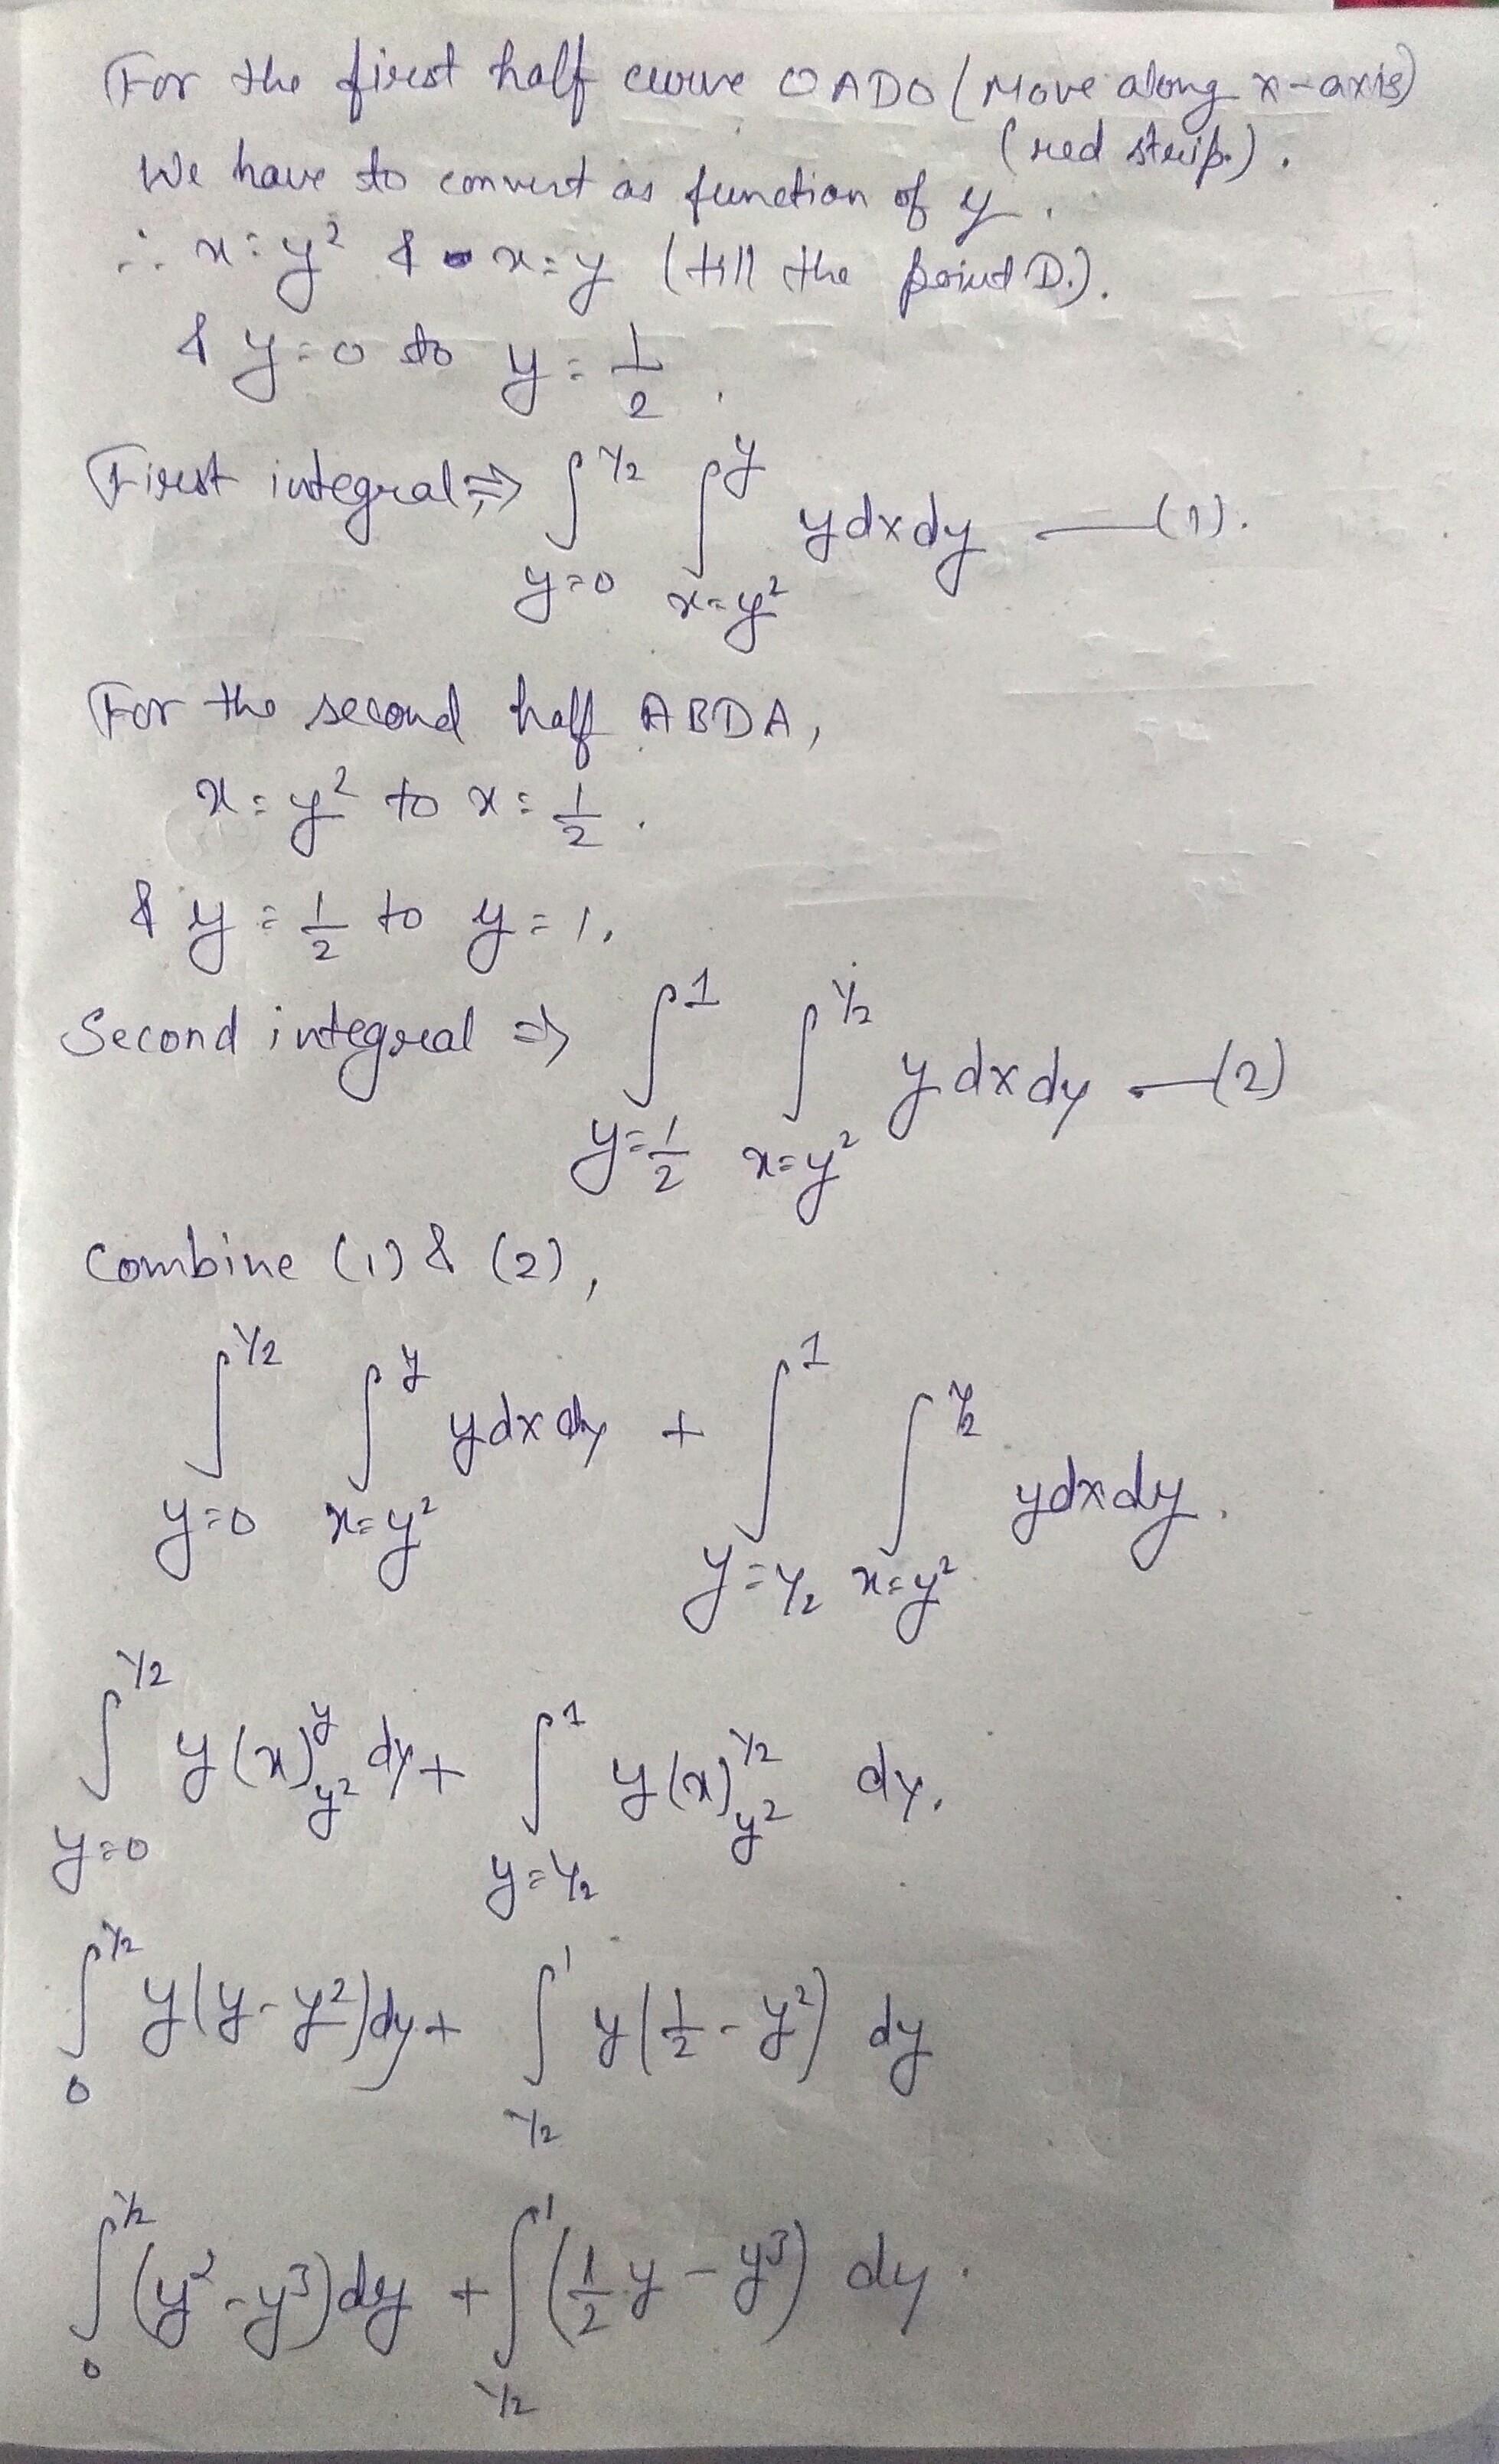 For the first half curve OADO (Move along x-axis)
(red strip.).
We have to convert as function of y.
∴ x = y² & x = y (till the point D.).
& y = 0 to y = 1/2.
First integral ⇒ ∫_{y=0}^{1/2} ∫_{x=y²}^{y} y dx dy —(1).
For the second half ABDA,
x = y² to x = 1/2.
& y = 1/2 to y = 1.
Second integral ⇒ ∫_{y=1/2}^{1} ∫_{x=y²}^{1/2} y dx dy —(2)
Combine (1) & (2),
∫_{y=0}^{1/2} ∫_{x=y²}^{y} y dx dy + ∫_{y=1/2}^{1} ∫_{x=y²}^{1/2} y dx dy.
∫_{y=0}^{1/2} y(x)_{y²}^{y} dy + ∫_{y=1/2}^{1} y(x)_{y²}^{1/2} dy.
∫_{0}^{1/2} y(y-y²)dy + ∫_{1/2}^{1} y(1/2 - y²) dy
∫_{0}^{1/2} (y²-y³)dy + ∫_{1/2}^{1} (1/2 y - y³) dy.